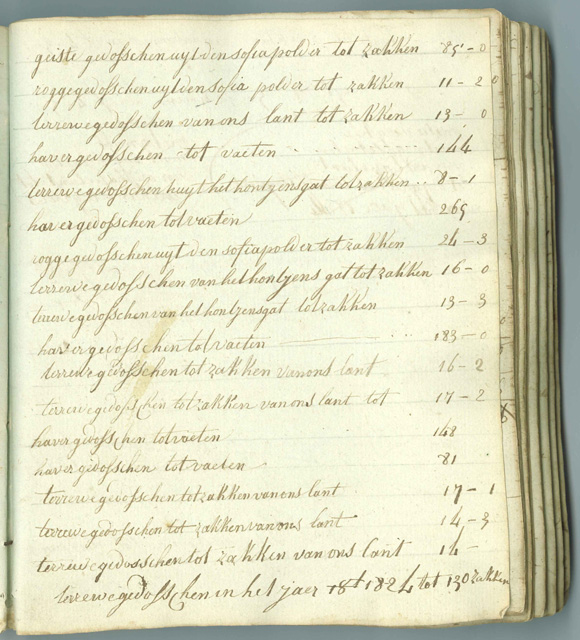 geiste gedosschen uyt den sofia polder tot zakken 85 - 0
rogge gedosschen uyt den sofia polder tot zakken 11 - 2
terrewe gedosschen van ons lant tot zakken 13 - 0
haver gedosschen tot vaeten 144
terrewe gedosschen huyt het hontzensgat tot zakken .. 8 - 1
haver gedosschen tot vaeten 265
rogge gedosschen uyt den sofia polder tot zakken 24 - 3
terrewe gedosschen van het hontzens gat tot zakken 16 - 0
terrewe gedosschen van het hontzensgat tot zakken 13 - 3
haver gedosschen tot vaeten 183 - 0
terrewe gedosschen tot zakken van ons lant 16 - 2
terrewe gedosschen tot zakken van ons lant tot 17 - 2
haver gedosschen tot vaeten 148
haver gedosschen tot vaeten 81
terrewe gedosschen tot zakken van ons lant 17 - 1
terrewe gedosschen tot zakken van ons lant 14 - 3
terrewe gedosschen tot zakken van ons lant 14 -
terrewe gedosschen in het jaer 1824 tot 130 zakken